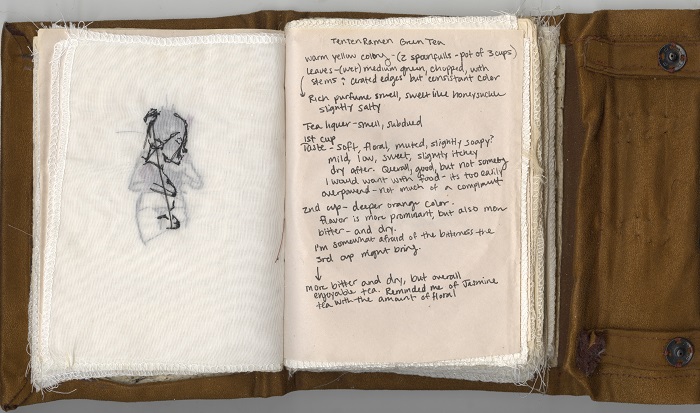 TenTen Ramen Green Tea
warm yellow colony - (2 spoonfulls - pot of 3 cups)
leaves - (wet) medium green, chopped, with
stems; cerated edges but consistant color
Rich purfume smell, sweet like honeysuckle
slightly salty
Tea liquer - smell, subdued
1st cup
Taste - soft, floral, muted, slightly soapy?
mild, low, sweet, slightly itchey
dry after. Overall, good, but not somethg
I would want with food - its too easily
overpowerd - not much of a compliment
2nd cup - deeper orange color.
flavor is more prominant, but also more
bitter - and dry.
I'm somewhat afraid of the bitterness the
3rd cup might bring.
more bitter and dry, but overall
enjoyable tea. Reminded me of Jasmine
tea with the amount of floral